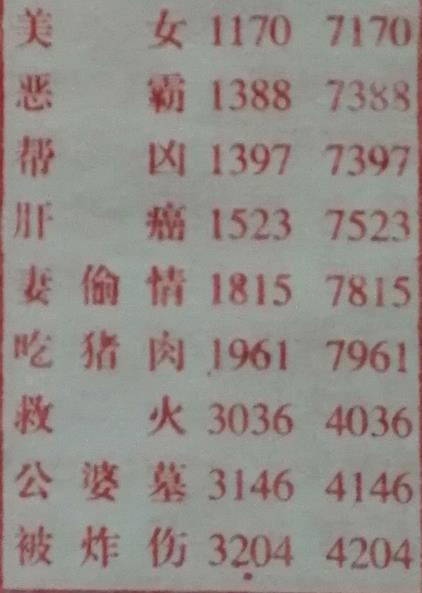 美女 1170 7170
恶霸 1388 7388
帮凶 1397 7397
肝癌 1523 7523
妻偷情 1815 7815
吃猪肉 1961 7961
救火 3036 4036
公婆墓 3146 4146
被炸伤 3204 4204